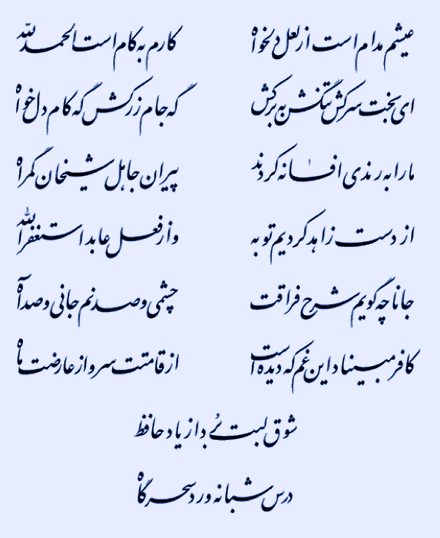 عیشم مدام است از لعل دلخواه کارم به کام است الحمدلله
ای بخت سرکش تنگش به بر کش گه جام زر کش گه کام دلخواه
ما را به رندی افسانه کردند پیران جاهل شیخان گمراه
از دست زاهد کردیم توبه و از فعل عابد استغفرالله
جانا چه گویم شرح فراقت چشمی و صد نم جانی و صد آه
کافر مبیناد این غم که دیده است از قامتت سرو از عارضت ماه
شوق لبت برد از یاد حافظ
درس شبانه ورد سحرگاه